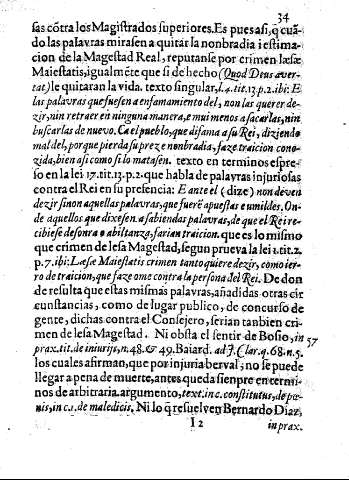 34
sas cõtra los Magistrados superiores. Es pues asi, q cuã-
do las palavras mirasen a quitar la nonbradia i estima-
cion de la Magestad Real, reputanse por crimen læsæ
Maiestatis, igualmẽte que si de hecho (Quod Deus aver-
tat) le quitaran la vida. texto singular, l.4.tit.13.p.2.ibi: E
las palavras que fuesen a enfamamiento del, non las querer de-
zir, nin retraer en ninguna manera, e mui menos a sacarlas, nin
buscarlas de nuevo. Ca el pueblo, que disfama a su Rei, diziendo
mal del, porque pierda su prez e nonbradia, faze traicion cono-
zida, bien asi como si lo matasen. texto en terminos espre-
so en la lei 17.tit.13.p.2. que habla de palavras injuriosas
contra el Rei en su presencia: E ante el (dize) non deven
dezir sinon aquellas palavras, que fuerẽ apuestas e umildes. On-
de aquellos que dixesen a sabiendas palavras, de que el Rei re-
cibiese desonra o abiltanza, farian traicion. que es lo mismo
que crimen de lesa Magestad, segun prueva la lei 1.tit.2.
p.7.ibi: Læsæ Maiestatis crimen tanto quiere dezir, como ier-
ro de traicion, que faze ome contra la persona del Rei. De don
de resulta que estas mismas palavras, añadidas otras cir
cunstancias, como de lugar publico, de concurso de
gente, dichas contra el Consejero, serian tanbien cri-
men de lesa Magestad. Ni obsta el sentir de Bosio, in
57
prax.tit. de iniurijs, n.48. & 49. Baiard. ad J. Clar.q.68.n.5.
los cuales afirman, que por injuria berval, no se puede
llegar a pena de muerte, antes queda sienpre en termi-
nos de arbitraria. argumento, text.in c. constitutus, de pœ-
nis, in c.1. de maledicis. Ni lo q resuelven Bernardo Diaz,
I 2
in prax.